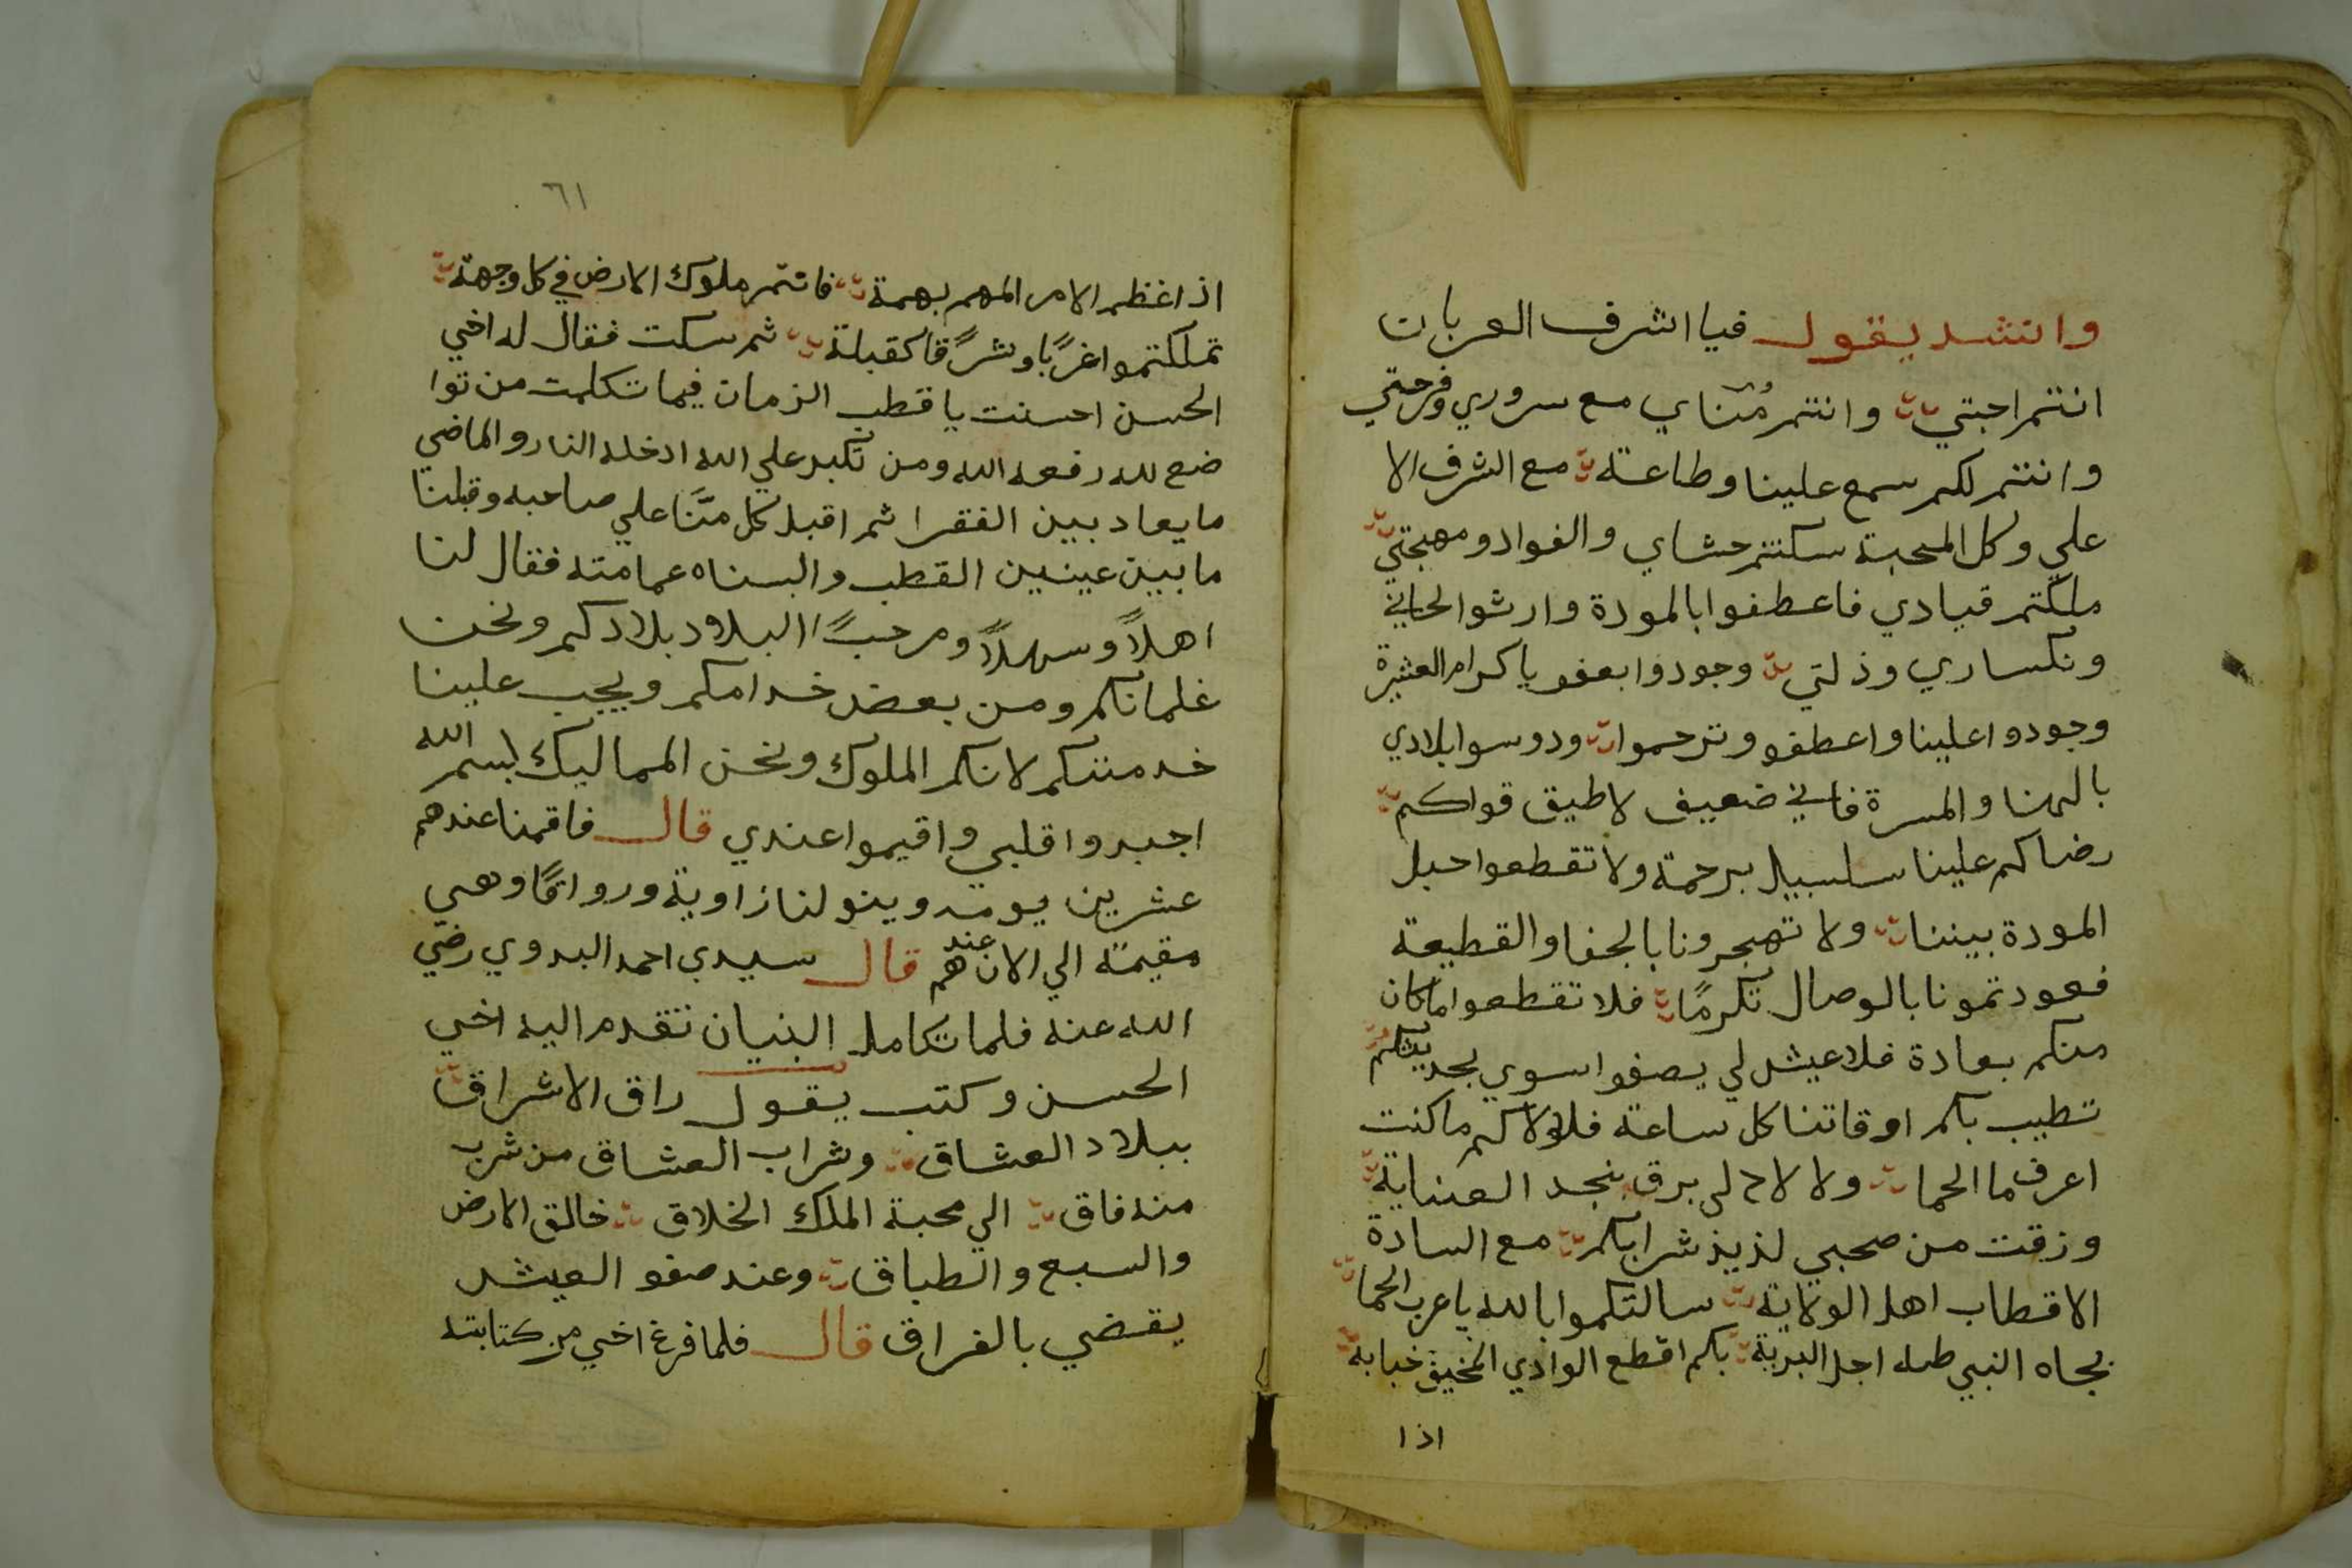 وانشد يقول فيا اشرف العربان
انتم احبتي وانتم مُناي مع سروري وفرحتي
وانتم لكم سمع علينا وطاعة مع الشرف الا
علي وكل المحبة سكنتم حشاي والفواد ومهجتي
ملكتم قيادي فاعطفوا بالمودة وارثوا لحاني
ونكساري وذلتي وجودوا بعفو يا كرام العشيرة
وجودوا علينا واعطفو وترحموا ودوسوا بلادي
بالهنا والمسرة فاني ضعيف لا طيق قواكم
رضاكم علينا سلسبيل برحمة ولا تقطعوا حبل
المودة بيننا ولا تهجرونا بالجفا والقطيعة
فعودتمونا بالوصال تكرمًا فلا تقطعوا ما كان
منكم بعادة فلا عيش لي يصفوا سوي بحديثكم
تطيب بكم اوقاتنا كل ساعة فلولاكم ما كنت
اعرف ما الحما ولا لاح لي برق بنجد العناية
وزقت من صحبي لذيذ شرابكم مع السادة
الاقطاب اهل الولاية سالتكموا بالله يا عرب الحما
بجاه النبي طه اجل البرية بكم اقطع الوادي المخيف خبابة
اذا
٦١
اذا غظم الامر المهم بهمة فانتم ملوك الارض في كل وجهة
تملكتموا غربًا وشرقًا كقبلة ثم سكت فقال له اخي
الحسن احسنت يا قطب الزمان فيما تكلمت من توا
ضع لله رفعه الله ومن تكبر علي الله ادخله النار والماضي
ما يعاد بين الفقرا ثم اقبل كل منَّا علي صاحبه وقبلنا
ما بين عينين القطب والبسناه عمامته فقال لنا
اهلاً وسهلاً ومرحبًا البلاد بلادكم ونحن
غلمانكم ومن بعض خدامكم ويجب علينا
خدمتكم لانكم الملوك ونحن المماليك بسم الله
اجبروا قلبي واقيموا عندي قال فاقمنا عندهم
عشرين يومه وبنو لنا زاوية ورواقًا وهي
مقيمة الي الان عندهم قال سيدي احمد البدوي رضي
الله عنه فلما تكامل البنيان تقدم اليه اخي
الحسن وكتب يقول راق الاشراق
ببلاد العشاق وشراب العشاق من شرب
منه فاق الي محبة الملك الخلاق خالق الارض
والسبع والطباق وعند صفو العيش
يقضي بالفراق قال فلما فرغ اخي من كتابته